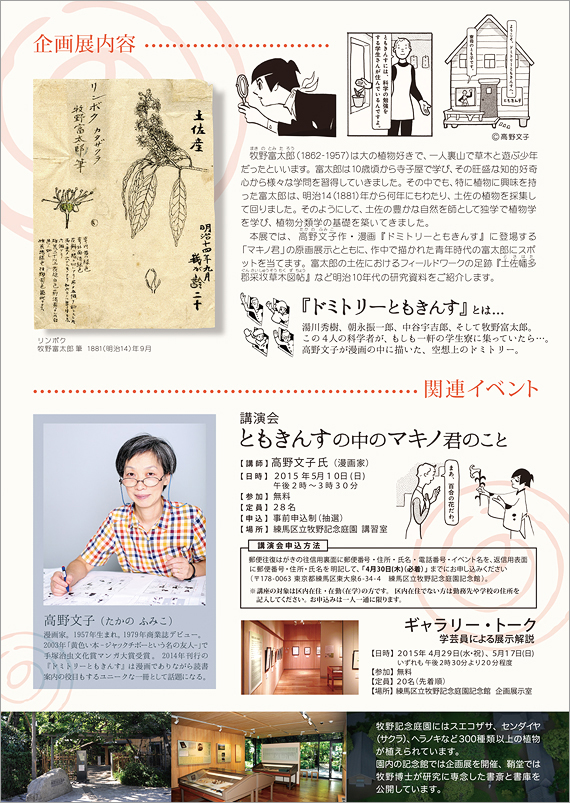 企画展内容
ようこそ、ドミトリーともきんすへ。
寮母のとも子です。
ともきんす
ともきんすには、科学の勉強を
する学生さんが住んでいるんですよ。
©高野文子
リンボク カタザクラ
牧野富太郎筆
土佐産
明治十四年九月
リンボク
牧野富太郎 筆 1881(明治14)年9月
牧野富太郎(1862-1957)は大の植物好きで、一人裏山で草木と遊ぶ少年
だったといいます。富太郎は10歳頃から寺子屋で学び、その旺盛な知的好奇
心から様々な学問を習得していきました。その中でも、特に植物に興味を持
った富太郎は、明治14(1881)年から何年にもわたり、土佐の植物を採集し
て回りました。そのようにして、土佐の豊かな自然を師として独学で植物学
を学び、植物分類学の基礎を築いてきました。
本展では、高野文子作・漫画『ドミトリーともきんす』に登場する
「マキノ君」の原画展示とともに、作中で描かれた青年時代の富太郎にスポ
ットを当てます。富太郎の土佐におけるフィールドワークの足跡『土佐幡多
郡采収草木図帖』など明治10年代の研究資料をご紹介します。
『ドミトリーともきんす』とは…
湯川秀樹、朝永振一郎、中谷宇吉郎、そして牧野富太郎。
この4人の科学者が、もしも一軒の学生寮に集っていたら…。
高野文子が漫画の中に描いた、空想上のドミトリー。
関連イベント
講演会
ともきんすの中のマキノ君のこと
【講師】高野文子氏(漫画家)
【日時】2015年5月10日(日)
午後2時〜3時30分
【参加】無料
【定員】28名
【申込】事前申込制(抽選)
【場所】練馬区立牧野記念庭園 講習室
まあ、百合の花だわ。
講演会申込方法
郵便往復はがきの往信用裏面に郵便番号・住所・氏名・電話番号・イベント名を、返信用表面
に郵便番号・住所・氏名を明記して、「4月30日(木)(必着)」までにお申し込みください
(〒178-0063 東京都練馬区東大泉6-34-4 練馬区立牧野記念庭園記念館)。
※講座の対象は区内在住・在勤(在学)の方です。区内在住でない方は勤務先や学校の住所を
記入してください。お申込みは一人一通に限ります。
高野文子(たかの ふみこ)
漫画家。1957年生まれ。1979年商業誌デビュー。
2003年『黄色い本-ジャックチボーという名の友人-』で
手塚治虫文化賞マンガ大賞受賞。2014年刊行の
『ドミトリーともきんす』は漫画でありながら読書
案内の役目もするユニークな一冊として話題になる。
ギャラリー・トーク
学芸員による展示解説
【日時】2015年 4月29日(水・祝)、5月17日(日)
いずれも 午後2時30分より20分程度
【参加】無料
【定員】20名(先着順)
【場所】練馬区立牧野記念庭園記念館 企画展示室
牧野記念庭園にはスエコザサ、センダイヤ
(サクラ)、ヘラノキなど300種類以上の植物
が植えられています。
園内の記念館では企画展を開催、鞘堂では
牧野博士が研究に専念した書斎と書庫を
公開しています。